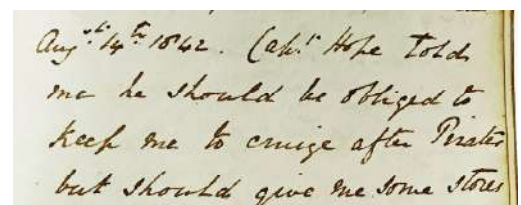 Augst. 14th 1842. Capt. Hope told
me he should be obliged to
keep me to cruize after Pirates
but should give me some stores